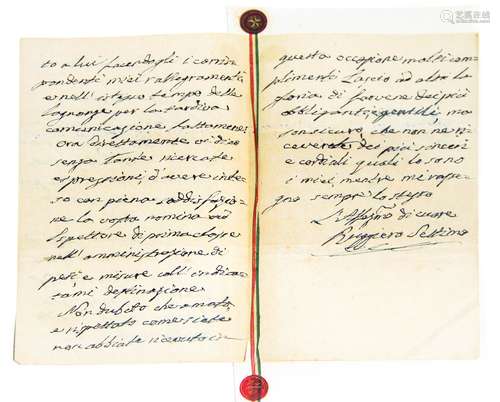 to a lui facendogli i corris
pondenti miei rallegramenti
e nell'istesso tempo delle
lagnanze per la tardiva
comunicazione fattamene
Ora direttamente vi dico
senza tante ricercate
espressioni, d'avere inte
so con piena soddisfazio
ne la vostra nomina ad
Ispettore di prima classe
nell'amministrazione di
pesi e misure coll'indica
tami destinazione
Non dubito che amato,
e rispettato come siete
non abbiate ricevuto in
questa occasione molti com
plimenti Lascio ad altri la
gloria di farvene dei più
obbliganti e gentili, ma
son sicuro, che non ne ri
ceverete dei più sinceri
e cordiali quali lo sono
i miei, mentre mi raffe
gno sempre lo stesso
L'Aff.mo di cuore
Ruggiero Settimo